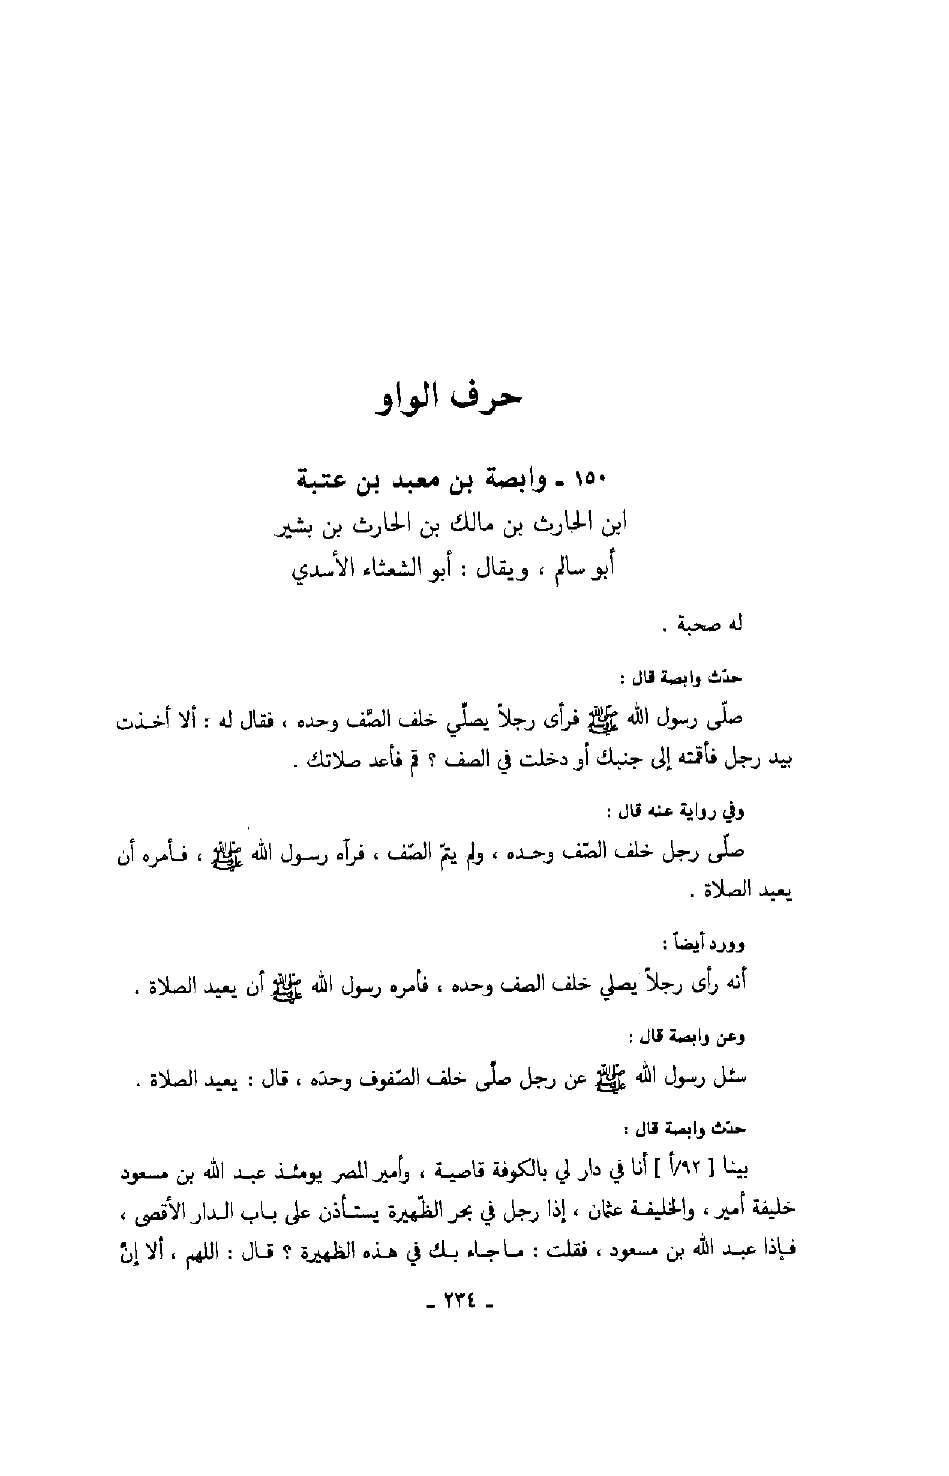 حرف الواو
١٥٠ ـ وابصة بن معبد بن عتبة
ابن الحارث بن مالك بن الحارث بن بشير
أبو سالم ، ويقال : أبو الشعثاء الأسدي
له صحبة .
حدّث وابصة قال :
صلّى رسول الله ﷺ فرأى رجلاً يصلّي خلف الصّف وحده ، فقال له : ألا أخذت
بيد رجل فأقمته إلى جنبك أو دخلت في الصف ؟ قم فأعد صلاتك .
وفي رواية عنه قال :
صلّى رجل خلف الصّف وحده ، ولم يتمّ الصّف ، فرآه رسول الله ﷺ ، فأمره أن
يعيد الصلاة .
وورد أيضاً :
أنه رأى رجلاً يصلي خلف الصف وحده ، فأمره رسول الله ﷺ أن يعيد الصلاة .
وعن وابصة قال :
سئل رسول الله ﷺ عن رجل صلّى خلف الصّفوف وحدَه ، قال : يعيد الصلاة .
حدّث وابصة قال :
بينا [ ٩٢/أ ] أنا في دار لي بالكوفة قاصية ، وأمير المصر يومئذ عبد الله بن مسعود
خليفة أمير ، والخليفة عثمان ، إذا رجل في بحر الظّهيرة يستأذن على باب الدار الأقصى ،
فإذا عبد الله بن مسعود ، فقلت : ماجاء بك في هذه الظهيرة ؟ قال : اللهم ، ألا إنَّ
ـ ٢٣٤ ـ